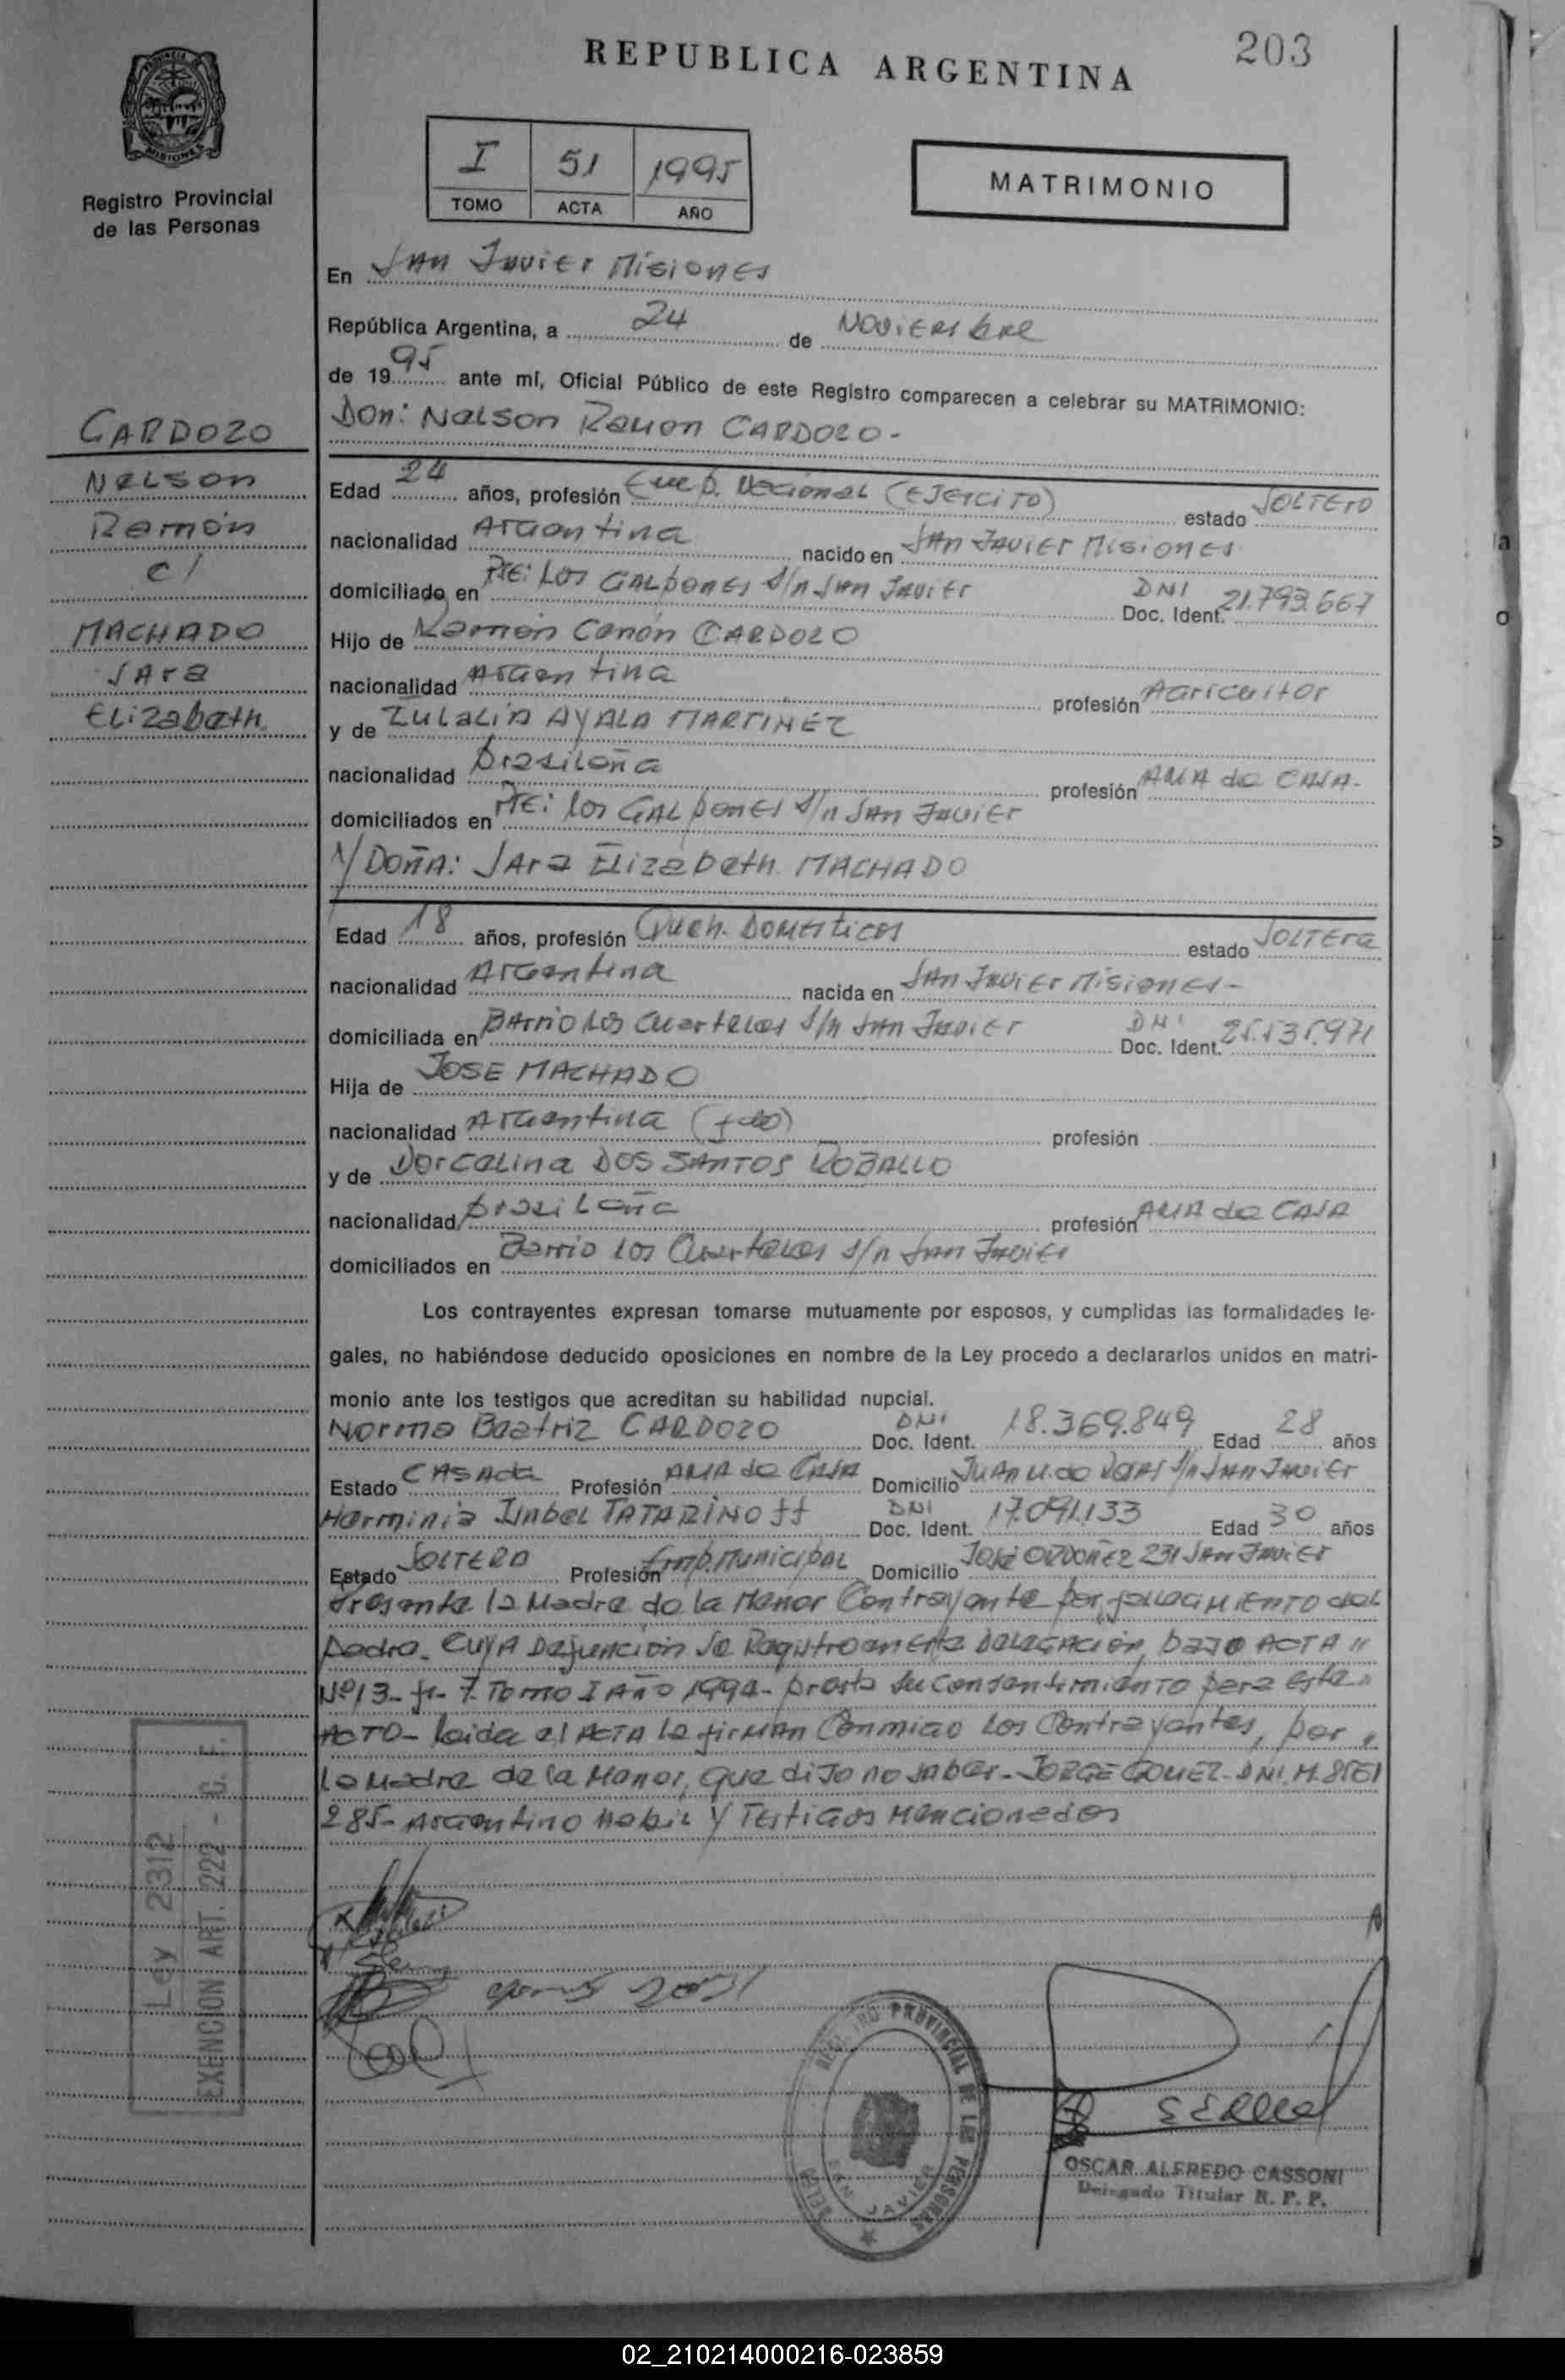 203
REPUBLICA ARGENTINA
MISIONES
Registro Provincial
de las Personas
I 51 1995
TOMO ACTA AÑO
MATRIMONIO
En San Javier Misiones
República Argentina, a 24 de Noviembre
de 1995 ante mí, Oficial Público de este Registro comparecen a celebrar su MATRIMONIO:
Don: Nelson Ramon CARDOZO-
CARDOZO
Nelson
Ramón
c/
MACHADO
Sara
Elizabeth
Edad 24 años, profesión Emp. Nacional (EJercito) estado Soltero
nacionalidad Argentina nacido en San Javier Misiones
domiciliado en Pje: Los Galpones s/n San Javier DNI Doc. Ident. 21.793.667
Hijo de Ramón CARDOZO
nacionalidad Argentina profesión Agricultor
y de Zulalia AYALA MARTINEZ
nacionalidad Brasileña profesión Ama de Casa-
domiciliados en Pje: los Galpones s/n San Javier
Y/DOÑA: Sara Elizabeth MACHADO
Edad 18 años, profesión Queh. Domesticos estado Soltera
nacionalidad Argentina nacida en San Javier Misiones-
domiciliada en Barrio Los Cuarteles s/n San Javier DNI Doc. Ident.
Hija de JOSE MACHADO
nacionalidad Argentina (fdo) profesión
y de Dorcalina DOS SANTOS ROBALLO
nacionalidad Brasileña profesión Ama de Casa
domiciliados en Barrio los Cuarteles s/n San Javier
Los contrayentes expresan tomarse mutuamente por esposos, y cumplidas las formalidades le-
gales, no habiéndose deducido oposiciones en nombre de la Ley procedo a declararlos unidos en matri-
monio ante los testigos que acreditan su habilidad nupcial.
Norma Beatriz CARDOZO DNI Doc. Ident. 18.369.849 Edad 28 años
Estado Casada Profesión Ama de Casa Domicilio Juan M. de Rosas s/n San Javier
Herminia Isabel TATARINOFF DNI Doc. Ident. 17.091.133 Edad 30 años
Estado Soltera Profesión Emp. Municipal Domicilio José Ordoñez 231 San Javier
Presente la Madre de la Menor Contrayente por fallecimiento del
padre. Cuya Defunción se Registro en esta Delegación, bajo ACTA "
Nº 13- fº- 7. Tomo I Año 1994- presta su consentimiento para este"
ACTO- leida el ACTA la firman Conmigo los Contrayentes, por
la Madre de la Menor, que diJo no saber- JORGE GOMEZ- DNI. M. 8561
285- Argentino Habil y Testigos Mencionados
Ley 2312
EXENCION ART. 222 - C. F.
REGISTRO PROVINCIAL DE LAS PERSONAS
SAN JAVIER
OSCAR ALFREDO CASSONI
Delegado Titular R. P. P.
02_210214000216-023859